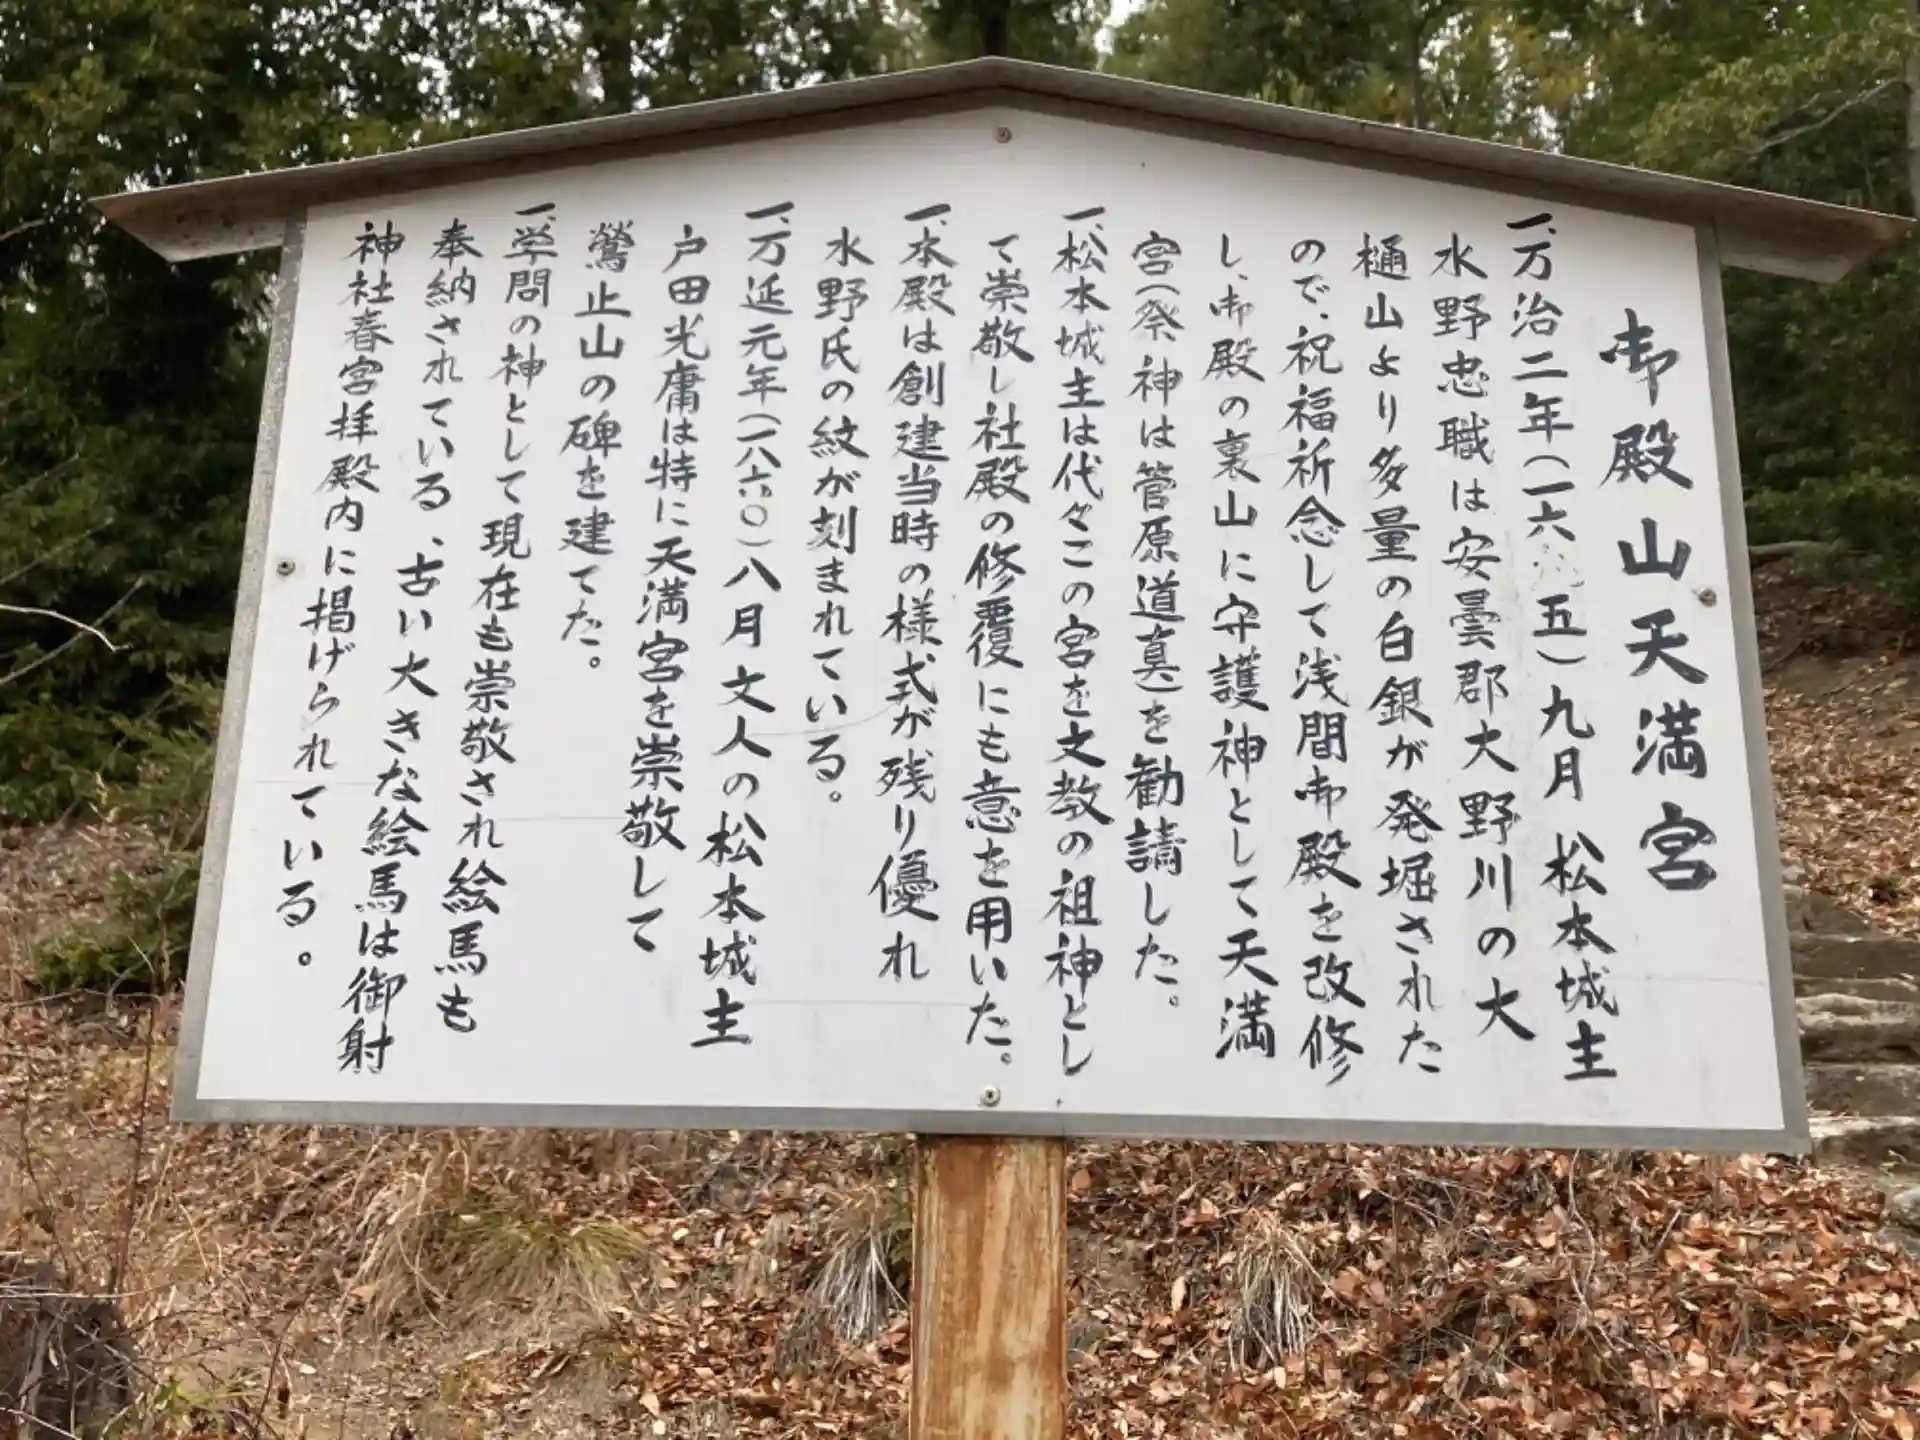 御殿山天満宮
一、万治二年(一六 五)九月 松本城主
水野忠職は安曇郡大野川の大
樋山より多量の白銀が発堀された
ので、祝福祈念して浅間御殿を改修
し、御殿の裏山に守護神として天満
宮(祭神は管原道真)を勧請した。
一、松本城主は代々この宮を文教の祖神とし
て崇敬し社殿の修覆にも意を用いた。
一、本殿は創建当時の様式が残り優れ
水野氏の紋が刻まれている。
一、万延元年(一八六〇)八月文人の松本城主
戸田光庸は特に天満宮を崇敬して
鶯止山の碑を建てた。
一、学問の神として現在も崇敬され絵馬も
奉納されている、古い大きな絵馬は御射
神社春宮拝殿内に掲げられている。